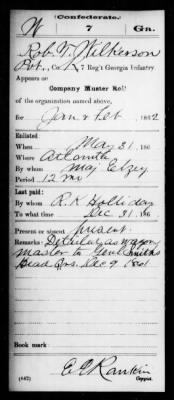 Confederate.
W 7 Ga.
Robt. W. Wilkerson
Pvt., Co. K, 7 Reg't Georgia Infantry.
Appears on
Company Muster Roll
of the organization named above,
for Jan & Feb 1862
Enlisted:
When May 31, 186
Where Atlanta
By whom Maj Elzey
Period 12 mo
Last paid:
By whom R. K. Holliday
To what time Dec 31, 186
Present or absent present.
Remarks: Detailed as wagon
master to Genl Smiths
Head Qrs. Dec 9 1861
Book mark:
(642) E E Rankin
Copyist.